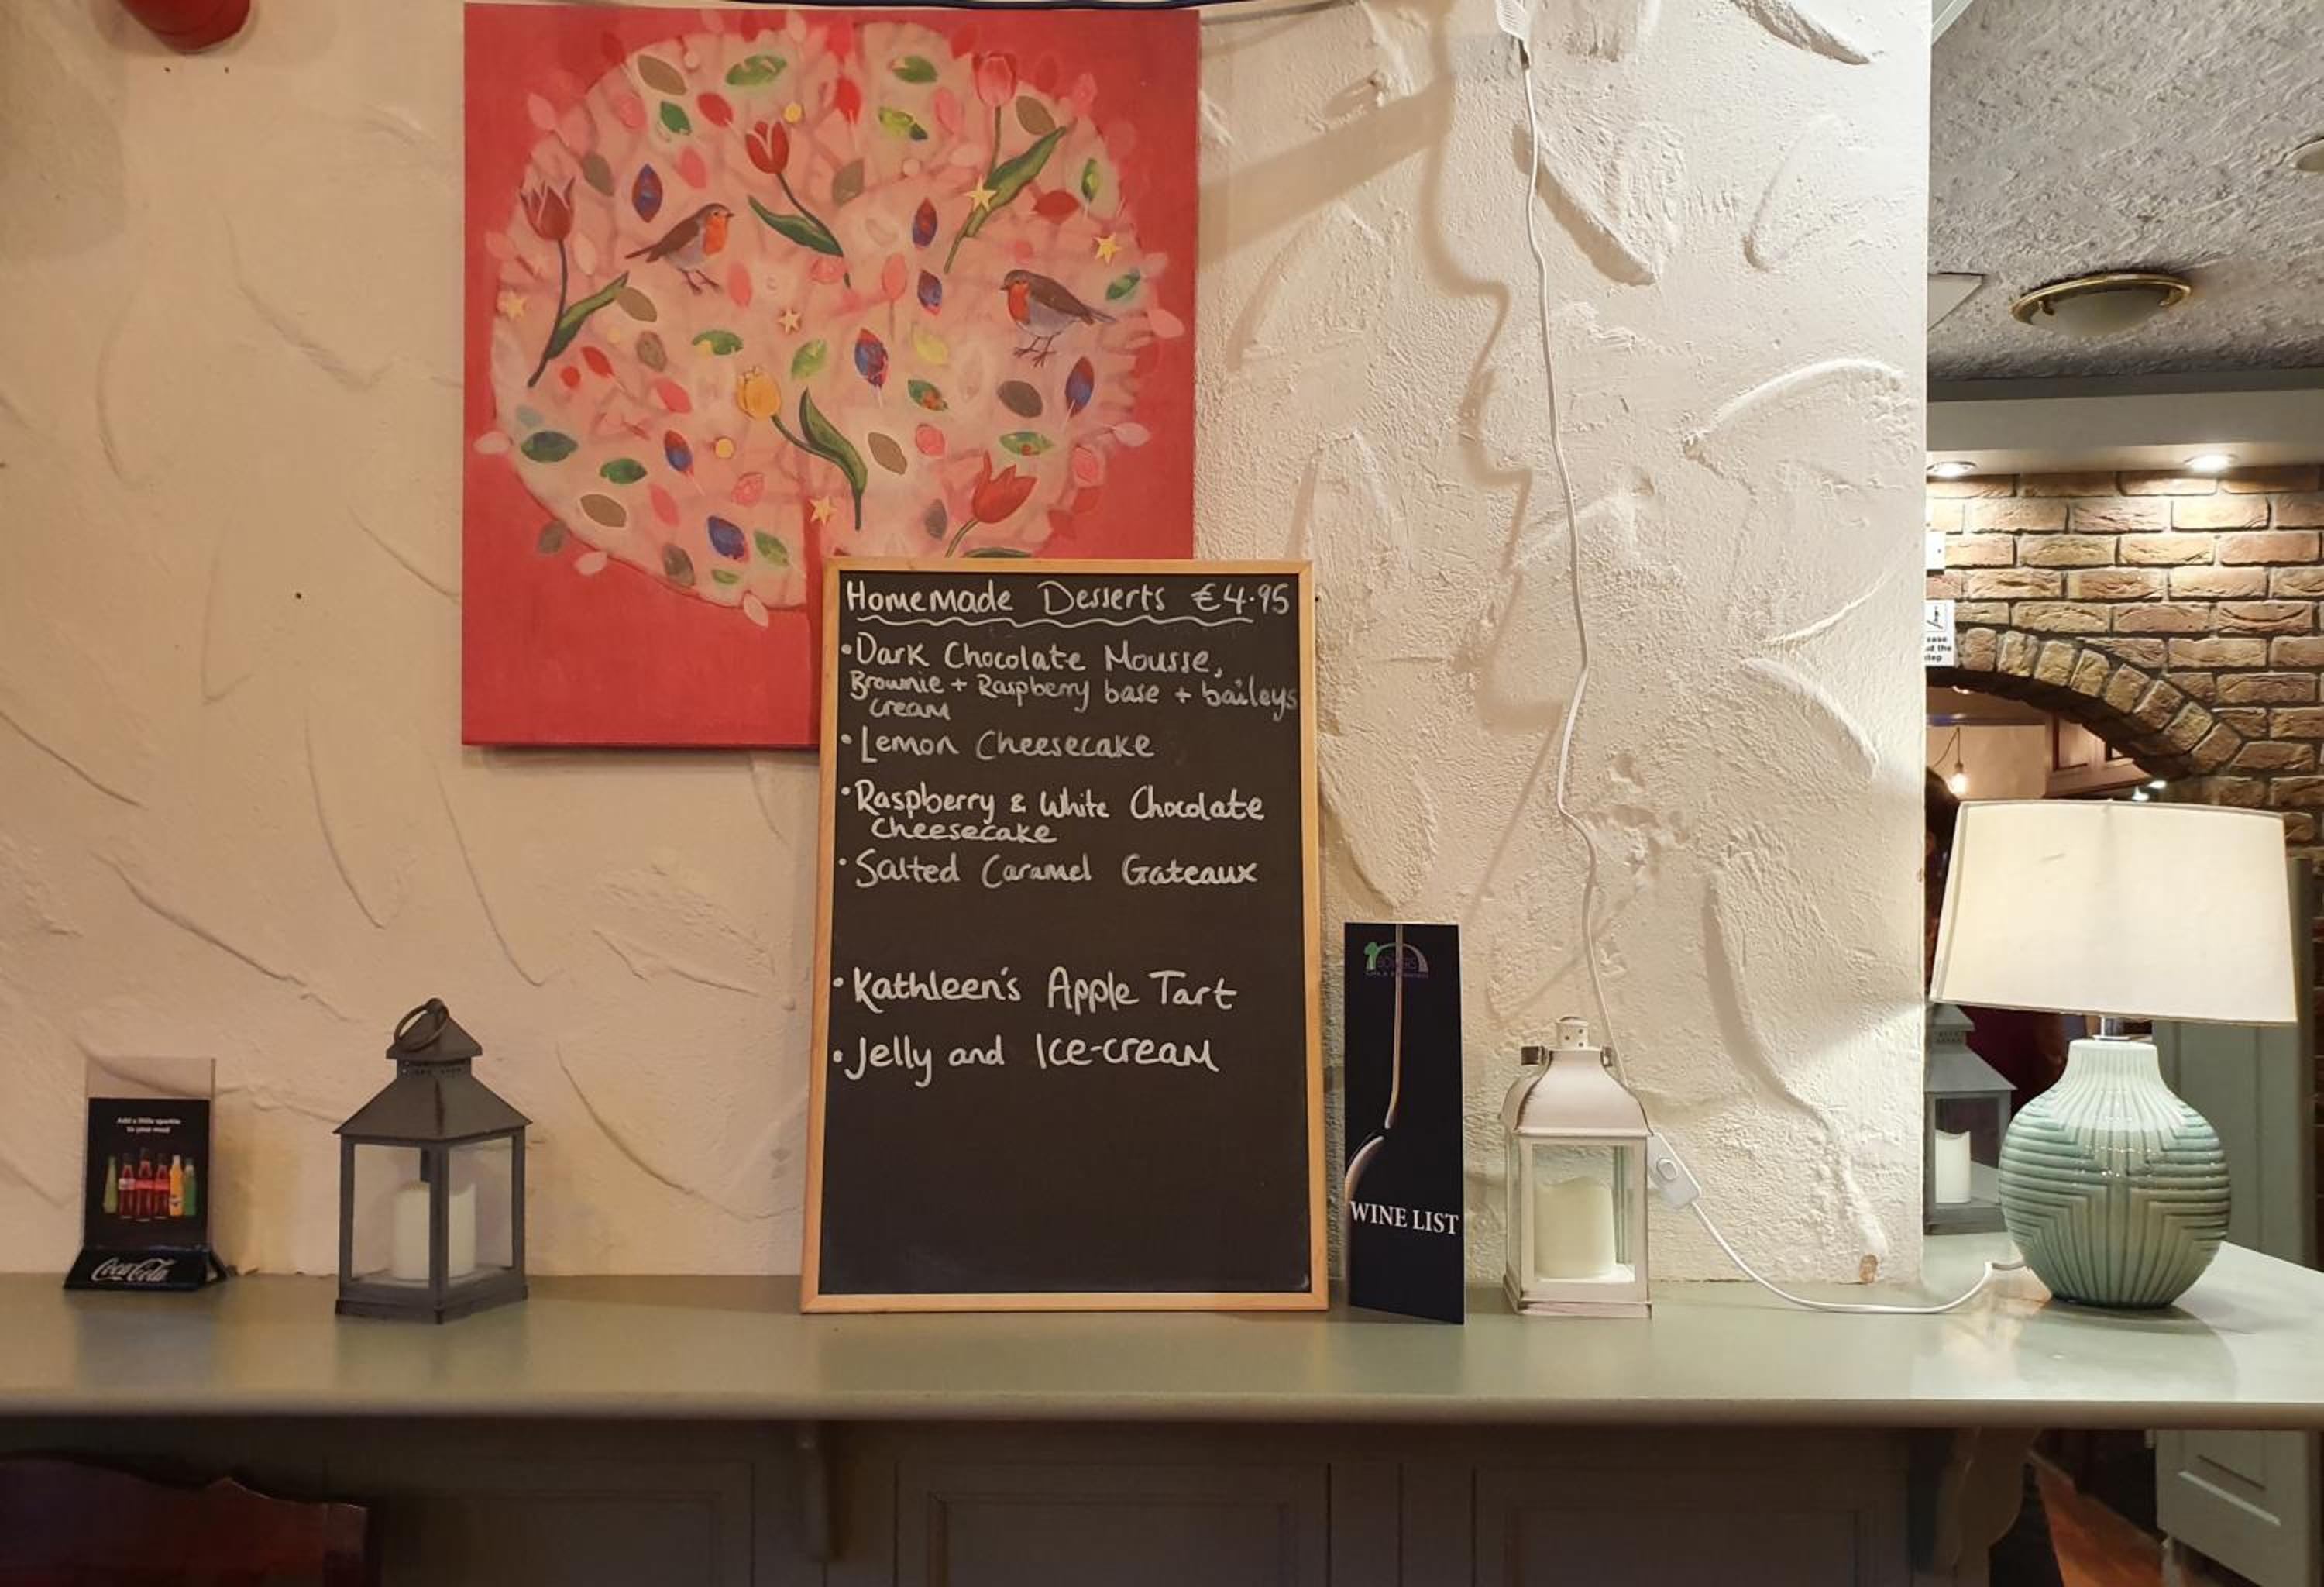 Homemade Desserts €4.95
•Dark Chocolate Mousse,
Brownie + Raspberry base + baileys
cream
•Lemon Cheesecake
•Raspberry & White Chocolate
Cheesecake
•Salted Caramel Gateaux
•Kathleen's Apple Tart
•Jelly and Ice-cream
WINE LIST
Add a little sparkle
to your meal
Coca-Cola